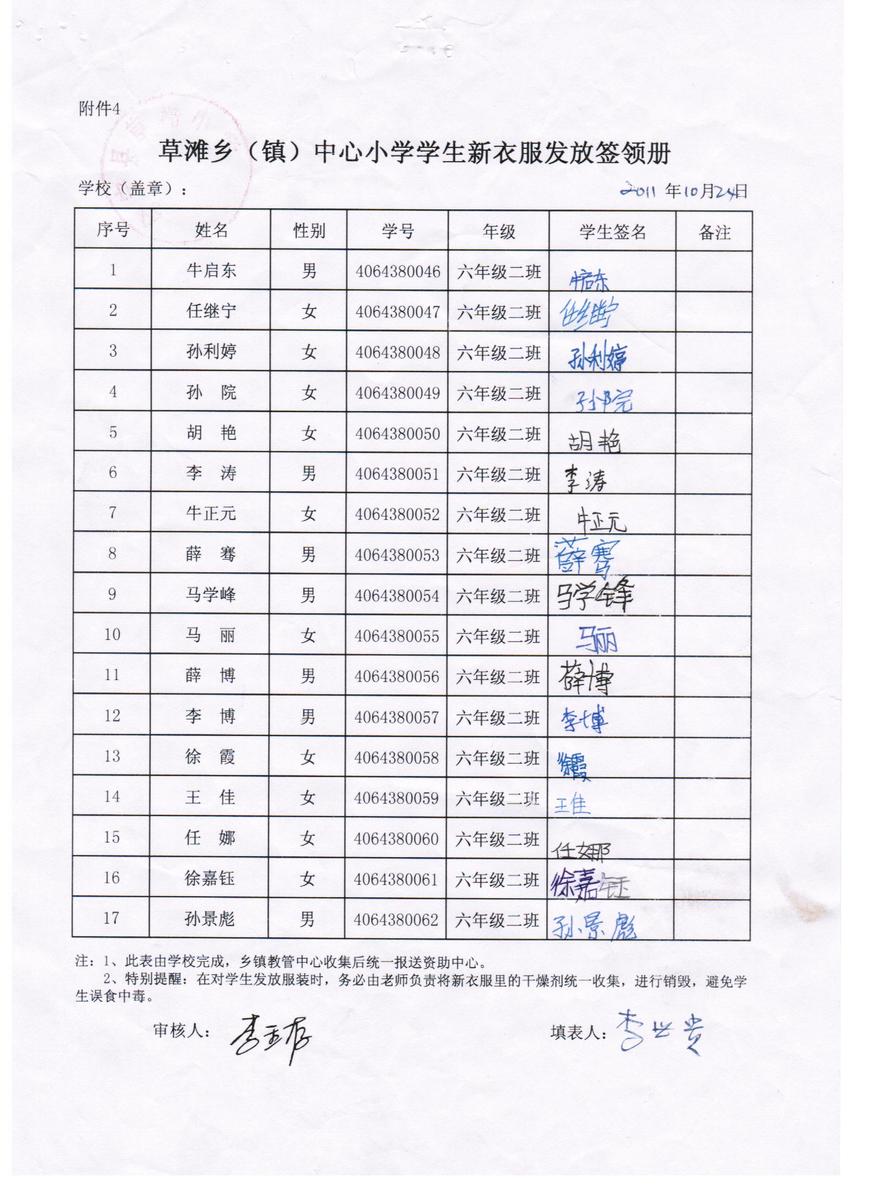 附件4
草滩乡（镇）中心小学学生新衣服发放签领册
学校（盖章）： 2011 年10月24日
序号 姓名 性别 学号 年级 学生签名 备注
1 牛启东 男 4064380046 六年级二班 牛启东
2 任继宁 女 4064380047 六年级二班 任继宁
3 孙利婷 女 4064380048 六年级二班 孙利婷
4 孙 院 女 4064380049 六年级二班 孙院
5 胡 艳 女 4064380050 六年级二班 胡艳
6 李 涛 男 4064380051 六年级二班 李涛
7 牛正元 女 4064380052 六年级二班 牛正元
8 薛 骞 男 4064380053 六年级二班 薛骞
9 马学峰 男 4064380054 六年级二班 马学锋
10 马 丽 女 4064380055 六年级二班 马丽
11 薛 博 男 4064380056 六年级二班 薛博
12 李 博 男 4064380057 六年级二班 李博
13 徐 霞 女 4064380058 六年级二班 徐霞
14 王 佳 女 4064380059 六年级二班 王佳
15 任 娜 女 4064380060 六年级二班 任娜
16 徐嘉钰 女 4064380061 六年级二班 徐嘉钰
17 孙景彪 男 4064380062 六年级二班 孙景彪
注：1、此表由学校完成，乡镇教管中心收集后统一报送资助中心。
2、特别提醒：在对学生发放服装时，务必由老师负责将新衣服里的干燥剂统一收集，进行销毁，避免学
生误食中毒。
审核人： 填表人：李世贵